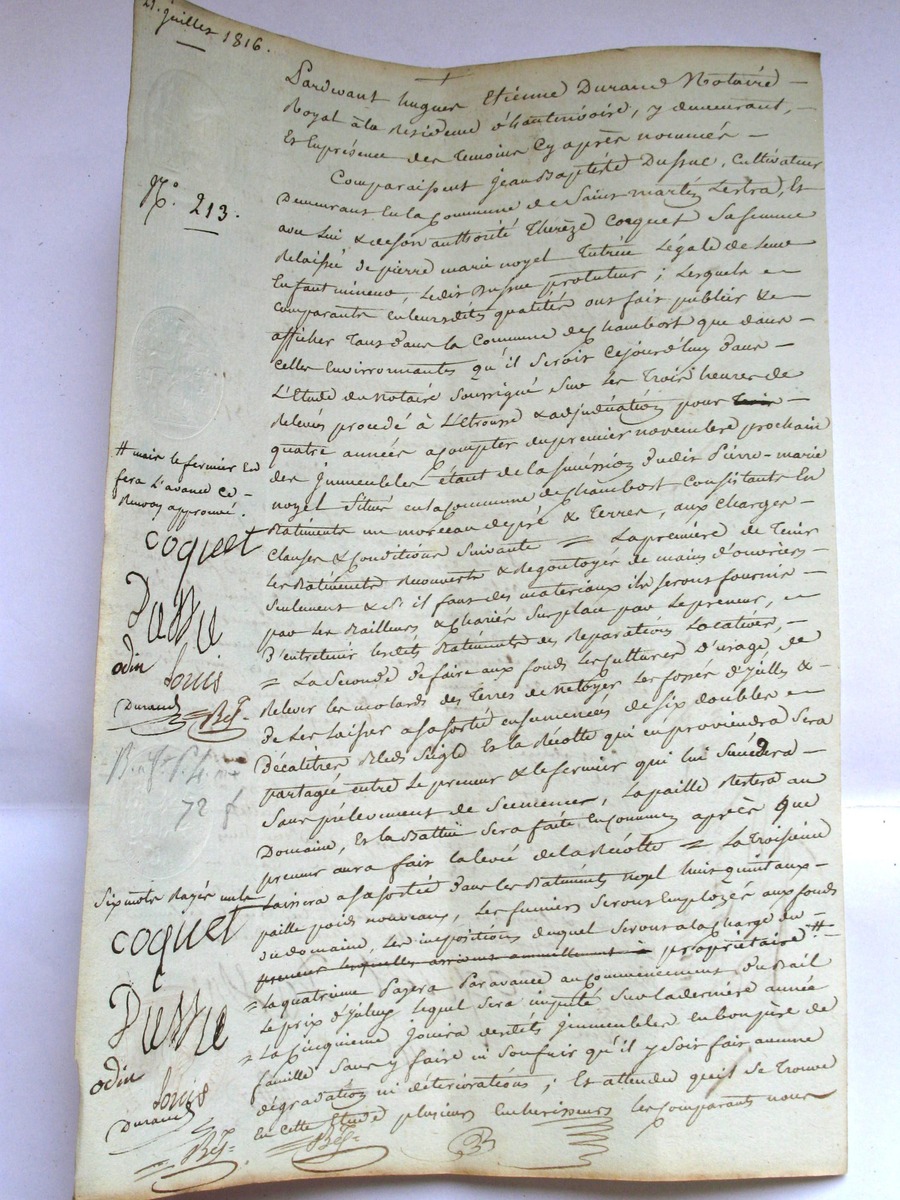 21. juillet 1816.
Pardevant hugues Etienne Durand Notaire
Royal à la Residence d'hauterivoire, y demeurant,
Et En présence des Temoins Cy après nommés
N.° 213.
Comparaissent Jean Baptiste Dussuc, Cultivateur
Demeurant En la Commune de Saint martin Lestra, Et
avec Lui & de son authorité Thérèze Coquet Sa femme
Relaissée de pierre marie noyel Tutrice Légale de Leur
Enfant mineur, Ledit Dussuc protuteur ; Lesquels
Comparants en leurs dites qualités ont fait publier &
afficher Tant Dans la Commune de Chambost que dans
Celles Environnantes qu'il Seroit Cejourd'huy Dans
L'Etude du Notaire Soussigné Sur les Trois heures de
Relevée procédé à L'Etrousse & adjudication pour
quatre années a compter du premier novembre prochain
Des Immeubles étant de la Succession Dudit Pierre marie
noyel Situés En la Commune de Chambost Consistants En
Batiments un morceau de pré & Terres, aux Charges
Clauses & Conditions Suivante = La première de Tenir
Les Batiments Recouverts & Regoutoyés de mains d'ouvriers
Seulement & S'il faut des materiaux ils seront fournis
par les Bailleurs & Chariés Sur place par Le preneur,
D'entretenir lesdits Batiments des Reparations Locatives,
= La Seconde De faire aux fonds les Cultures D'usage, de
Relever les molards des Terres de Netoyer les fossés D'yceux &
De Les laisser a sa Sortie ensemencées de Six doubles
Décalitres Bled Seigle Et la Récolte qui en proviendra Sera
partagée entre Le preneur & le fermier qui lui Succédera
Sans prélevement de Semences, La paille Restera au
Domaine, Et la Battue Sera faite En Commun après que
preneur aura fait la levée de la Récolte = La Troisieme
Laissera a sa Sortie Dans les Batiments noyel huit quintaux
paille poids nouveaux, Les fumiers Seront Employés aux fonds
du domaine, Les impositions duquel Seront a la Charge du
preneur lesquelles propriétaire #
= La quatrieme Payera Par avance au Commencement Du Bail
Le prix D'ycelui Lequel Sera imputé Sur la derniere année
= La Cinquieme Jouira desdits Immeubles En bon père de
famille Sans y faire ni Soufrir qu'il y Soit fait aucune
dégradation ni déteriorations ; Et attendu qu'il Se Trouve
En cette Etude plusieurs Encherisseurs les Comparants nous
# mais le fermier En
fera L'avance Ce
Renvoy approuvé.
coquet
Dussuc
odin
Louis
Durand
72 f
Six mots Rayés nuls
coquet
Dussuc
odin
Louis
Durand